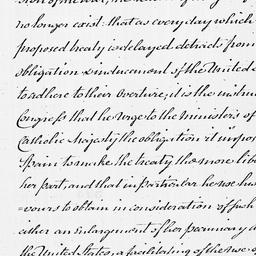 no longer exist: that as every day which
proposed treaty is delayed detracts from
obligation & inducement of the United
to adhere to their Overture, it is the
Congress that he urge to the ministers of
Catholic Majesty the obligation it
Spain to make the treaty the more
her part, and that in particular he use
=vours to obtain in consideration of such
either an Enlargement of her pecuniary
the United States, a facilitating of the use of